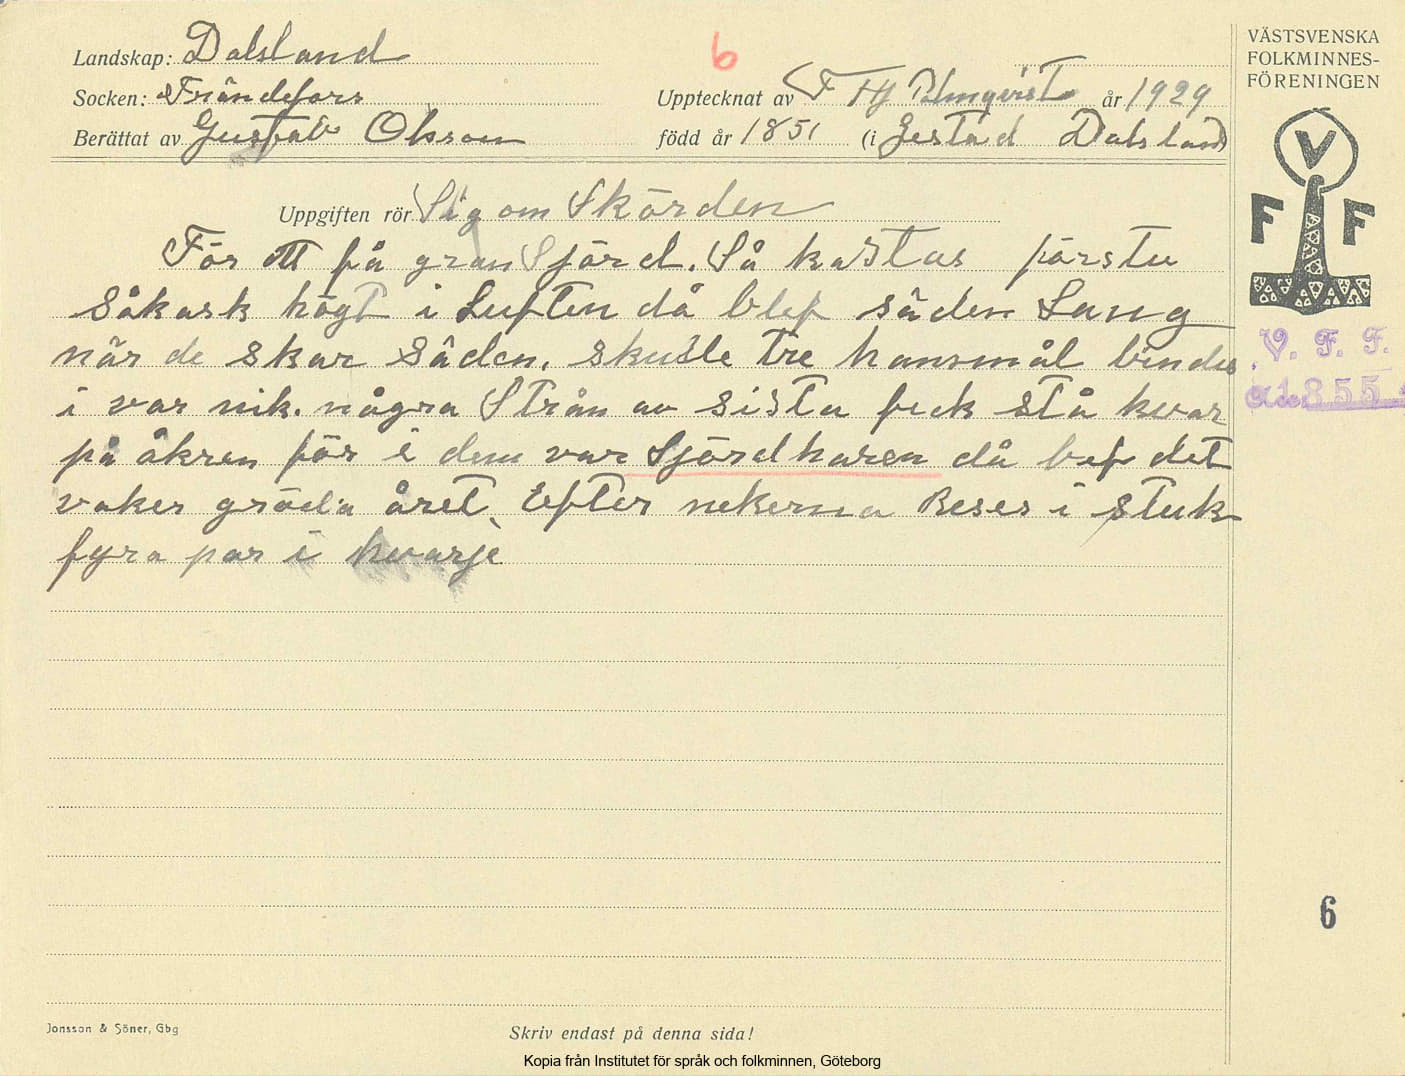 Landskap: Dalsland
6
VÄSTSVENSKA
FOLKMINNES-
FÖRENINGEN
Socken: Frändefors
Upptecknat av F Hj Palmqvist år 1929
Berättat av Gustav Olsson
född år 1851 (i Jestad Dalsland
V
F F
Uppgiften rör Sig om Skörden
För att få gran Sjörd. Så kastas förstu
såkask högt i Luften då blef säden Lang
när de skar säden, skulle tre hansmål bindes
i var nik. några Strån av sista feck stå kvar
på åkren för i dem var Sjördharen då bef det
vaker gröda året, Efter nekerna Reses i stuk
fyra par i hvarje
V. F. F.
855
6
Jonsson & Söner, Gbg
Skriv endast på denna sida!
Kopia från Institutet för språk och folkminnen, Göteborg